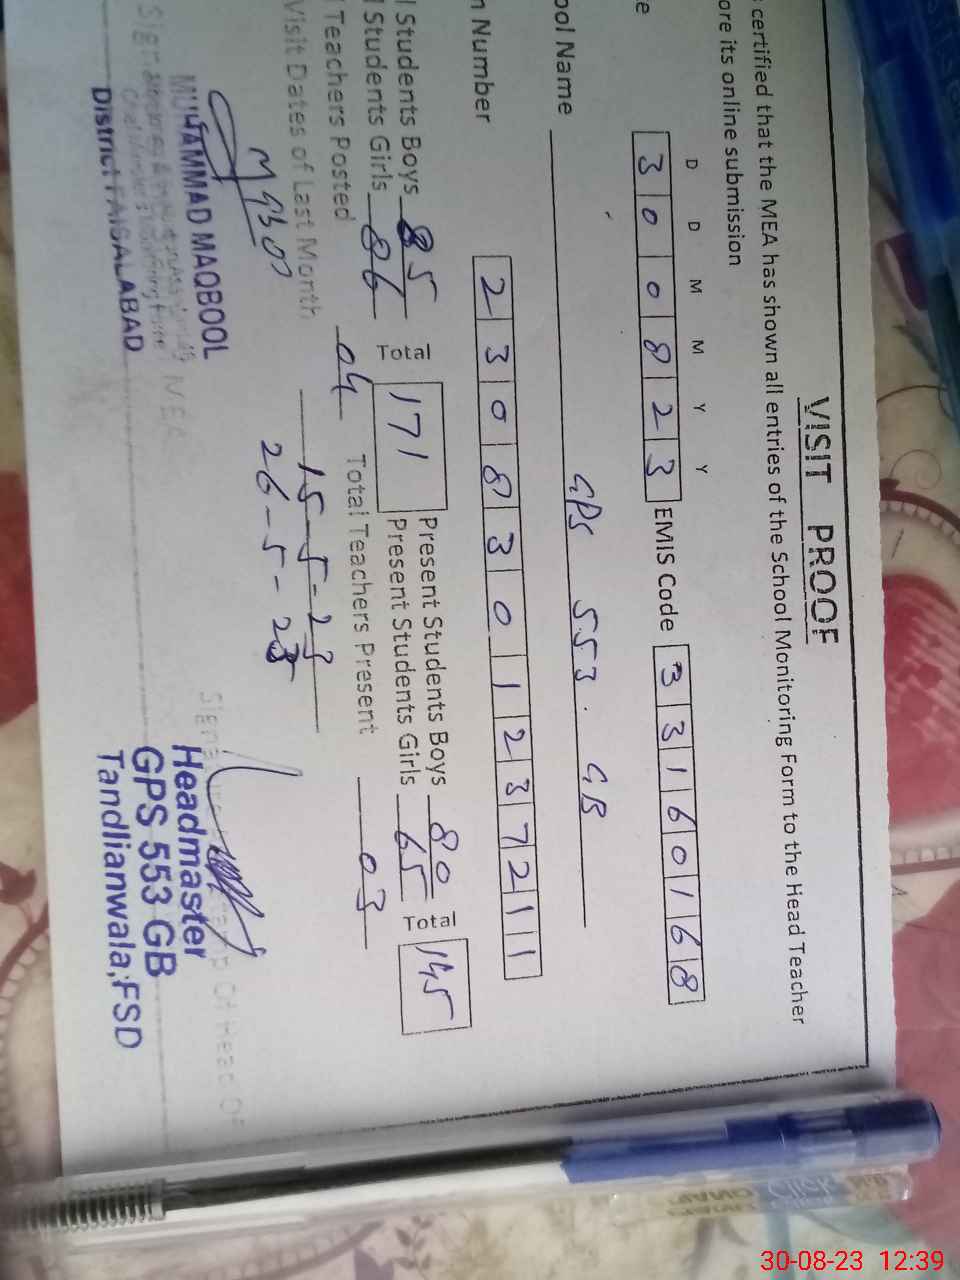 VISIT PROOF
certified that the MEA has shown all entries of the School Monitoring Form to the Head Teacher
ore its online submission
D D M M Y Y
e 3 0 0 8 2 3 EMIS Code 3 3 1 6 0 1 6 8
ool Name GPS 553. GB
n Number 2 3 0 8 3 0 1 2 3 7 2 1 1
l Students Boys 85 Total 171 Present Students Boys 80 Total 145
l Students Girls 86 Present Students Girls 65
l Teachers Posted 04 Total Teachers Present 03
Visit Dates of Last Month 15-5-23
26-5-23
M 930
MUHAMMAD MAQBOOL
District FAISALABAD
Headmaster
GPS 553 GB
Tandlianwala, FSD
30-08-23 12:39